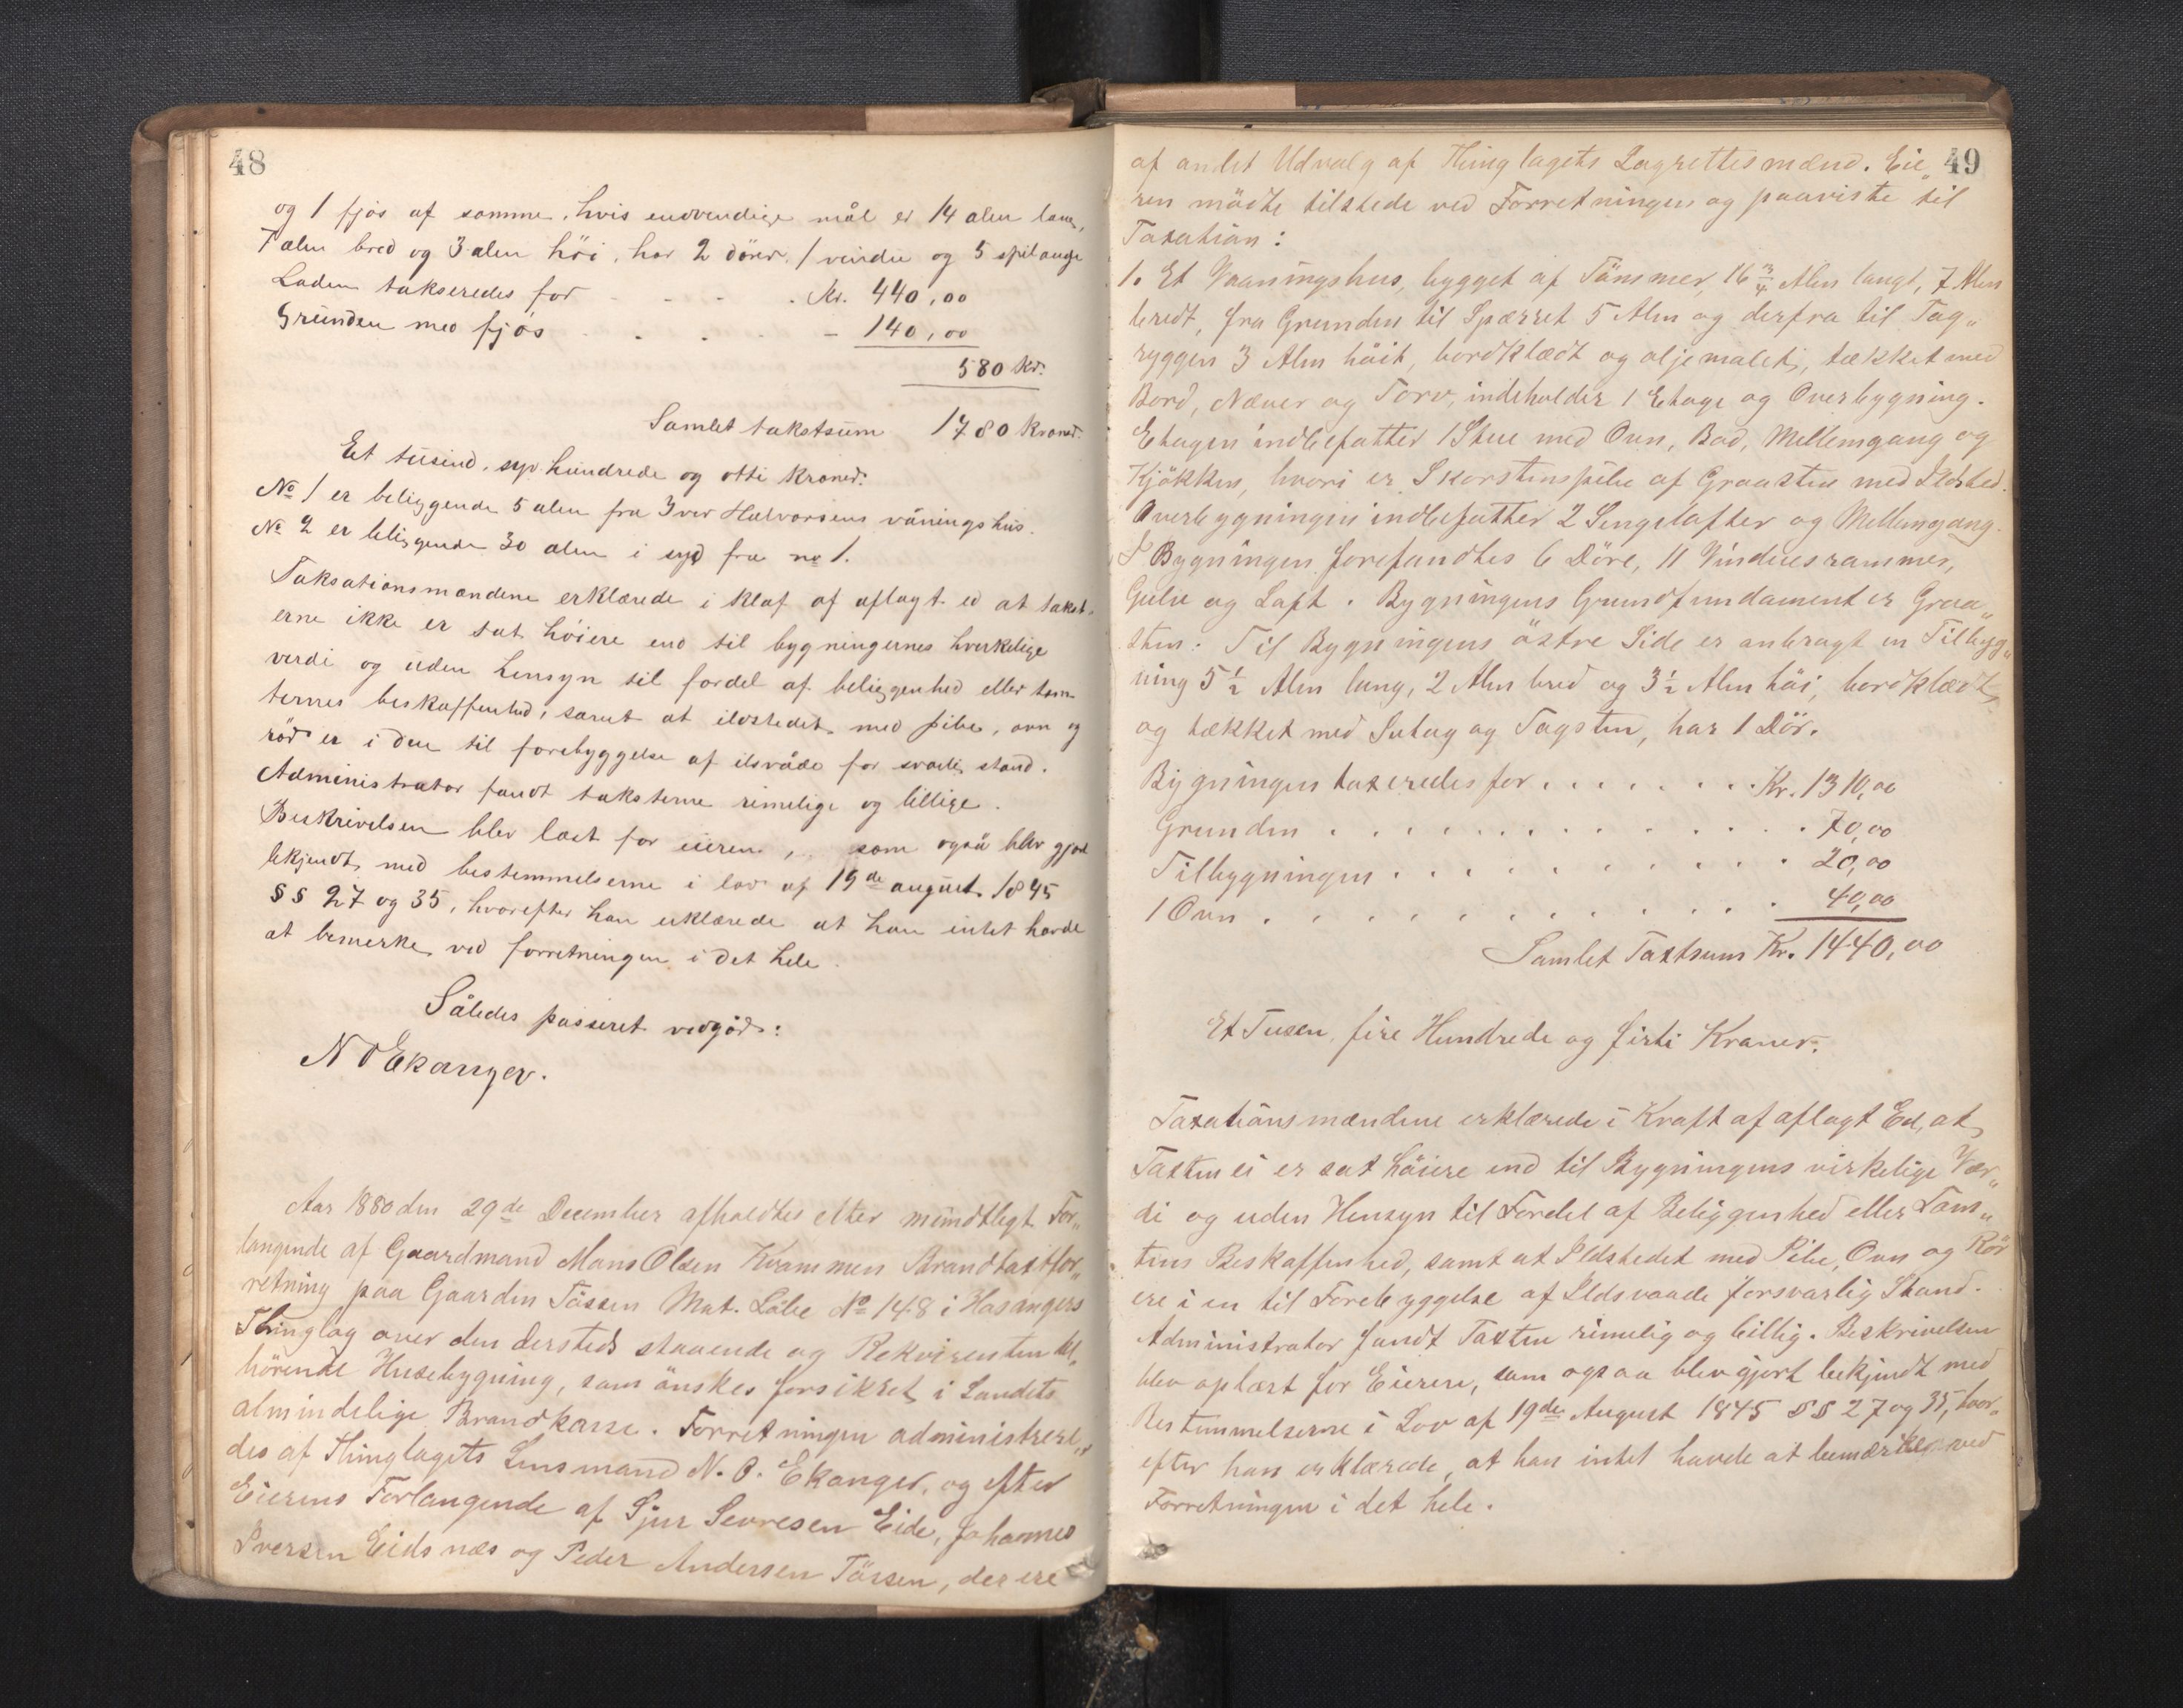 48
og 1 fjøs af samme, hvis indvendige mål er 14 alen lang,
7 alen bred og 3 alen höi, har 2 dörer, 1 vindu og 5 spilauge
Laden takseredes for - - - . Kr. 440,00
Grunden med fjös . . . - 140,00
580 Kr.
Samlet takstsum 1780 kroner.
Et tusind, syv hundrede og otti kroner.
No 1 er beliggende 5 alen fra Iver Halvorsens våningshus.
No 2 er beliggende 30 alen i syd fra no 1.
Taksationsmændene erklærede i kraf af aflagt ed at takst-
erne ikke er sat höiere end til bygningernes hverkelige
verdi og uden hensyn til fordel af beliggenhed eller tom-
ternes beskaffenhed, samt at ildstedet med pibe, ovn og
rör er i den til forebyggelse af ilsvåde for svarlig stand.
Administrator fandt taksterne rimelige og billige.
Beskrivelsen blev læst for eieren, som også blev gjort
bekjendt med bestemmelserne i lov af 19de august 1845
§§ 27 og 35, hvorefter han erklærede at han intet havde
at bemerke ved forretningen i det hele.
Således passeret vedgår:
N O Ekanger.
Aar 1880 den 29de December afholdtes efter mundtligt For„
langende af Gaardmand Mons Olsen Krammen Brandtaxtfor„
retning paa Gaarden Tössen Mat. Löbe No 148 i Hosangers
Thinglag over den dersteds staaende og Rekvirenten til„
hörende Husebygning, som önskes forsikret i Landets
almindelige Brandkasse. Forretningen administrere„
des af Thinglagets Lensmand N. O. Ekanger, og efter
Eierens Forlangende af Sjur Sevresen Eide, Johannes
Iversen Eidsnæs og Peder Andersen Tössen, der ere
49
af andet Udvalg af Thinglagets Lagrettesmænd. Eie„
ren mödte tilstede ved Forretningen og paaviste til
Taxation:
1. Et Vaaningshus, bygget af Tömmer, 16 3/4 Alen langt, 7 Alen
bredt, fra Grunden til Spærret 5 Alen og derfra til Tag„
ryggen 3 Alen höit, bordklædt og oljemalet, tækket med
Bord, Næver og Torv, indeholder 1 Etage og Overbygning.
Etagen indbefatter 1 Stue med Ovn, Bod, Mellemgang og
Kjökken, hvori er Skorstenspibe af Graasten med Ildsted.
Overbygningen indbefatter 2 Sengelofter og Mellemgang.
I Bygningen forefandtes 6 Döre, 11 Vinduesrammer,
Gulve og Loft. Bygningens Grundfundament er Graa„
sten. Til Bygningens östre Side er anbragt en Tilbyg„
ning 5 1/2 Alen lang, 2 Alen bred og 3 1/2 Alen höi, bordklædt,
og tækket med Sutag og Tagsten, har 1 Dör.
Bygningen taxeredes for . . . . . . . Kr. 1310,00
Grunden . . . . . . . . . . . . . 70,00
Tilbygningen . . . . . . . . . . 20,00
1 Ovn . . . . . . . . . . . . 40,00
Samlet Taxtsum Kr. 1440,00
Et Tusen, fire Hundrede og firti Kroner.
Taxationsmændene erklærede i Kraft af aflagt Ed, at
Taxten ei er sat höiere end til Bygningens virkelige Vær„
di og uden Hensyn til Fordel af Beliggenhed eller Tom„
tens Beskaffenhed, samt at Ildstedet med Pibe, Ovn og Rör
ere i en til Forebyggelse af Ildsvaade forsvarlig Stand.
Administrator fandt Taxten rimelig og billig. Beskrivelsen
blev oplæst for Eieren, som ogsaa blev gjort bekjendt med
Bestemmelserne i Lov af 19de August 1845 §§ 27 og 35, hvor„
efter han erklærede, at han intet havde at bemærke ved
Forretningen i det hele.